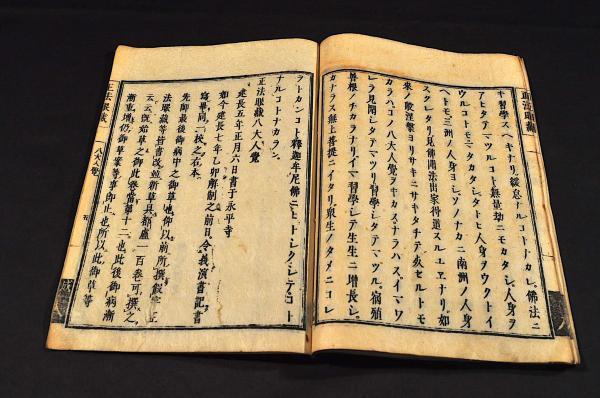 正法眼藏
キ習學スヘキナリ。緩怠ナルコトナカレ。佛法ニ
アヒタテマツルコト無量劫ニモカタシ。人身ヲ
ウルコトモマタカタシ。タトヒ人身ヲウクトイ
ヘトモ三洲ノ人身ヨシ。ソノナカニ南洲ノ人身
スクレタリ。見佛聞法出家得道スルユヱナリ。如
來ノ般涅槃ヨリサキニサキタチテ死セルトモ
カラハ。コノ八大人覺ヲキカスナラハス。イマワ
レラ見聞シタテマツリ習學シタテマツル。宿殖
善根ノチカラナリ。イマ習學シテ生生ニ增長シ。
カナラス無上菩提ニイタリ。衆生ノタメニコレ
ヲトカンコト釋迦牟尼佛ニヒトシクシテコト
ナルコトナカラン。
正法眼藏八大人覺
建長五年正月六日書于永平寺
如今建長七年乙卯解制之前日。令義演書記書
寫畢。同一校之。右本。
先師最後御病中之御草也。仰以前所撰假字正
云云。既始草之御此卷當第十二也。此後御病漸
漸重增。仍御草案等事卽止也。所以此御草等
正法眼藏
八大人覺